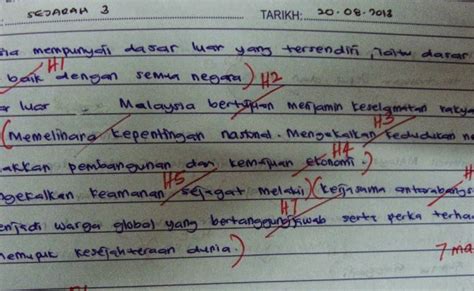 SEJARAH 3 TARIKH: 20.08.2013
sia mempunyai dasar luar yang tersendiri, iaitu dasar
H1
baik dengan semua negara) H2
ar luar Malaysia bertujuan menjamin keselamatan rakya
H3
(Memelihara kepentingan nasional. Mengekalkan kedudukan ne
H4
akkan pembangunan dan kemajuan ekonomi.)
H5 H
ngekalkan keamanan sejagat melalui) (kerjasama antarabangs
H7
enjadi warga global yang bertanggungjawab serta peka terha
memupuk kesejahteraan dunia.) 7 ma